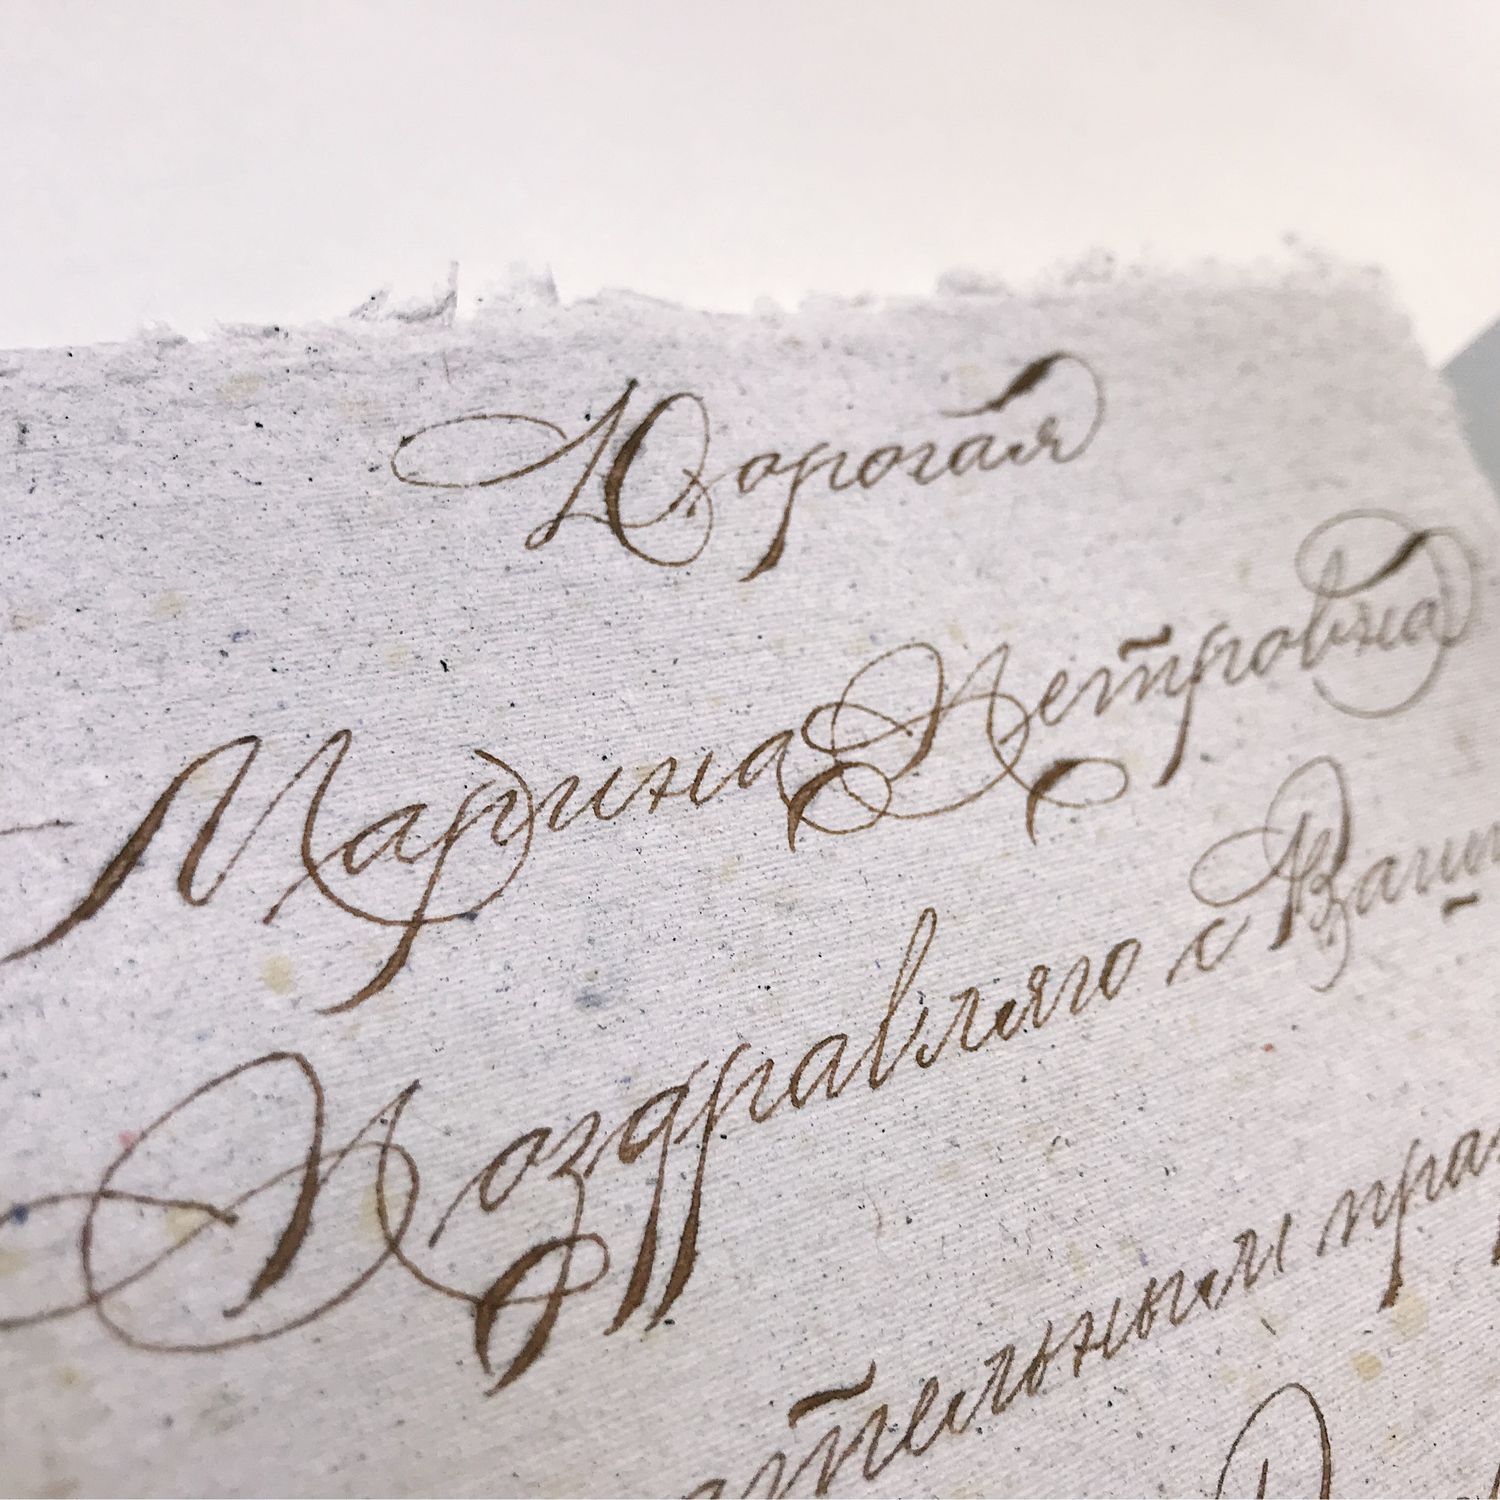 Дорогая
Марина Петровна
Поздравляю с Ваш
ательным праз